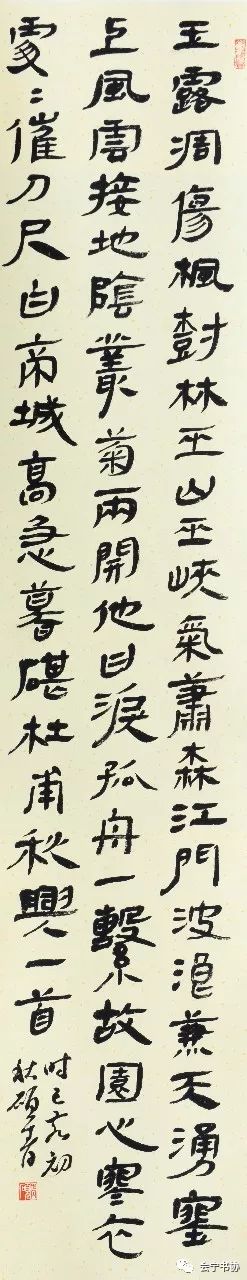 玉露凋傷楓樹林巫山巫峽氣蕭森江門波浪兼天湧塞
上風雲接地陰叢菊兩開他日淚孤舟一繫故園心寒衣
處〻催刀尺白帝城高急暮砧杜甫秋興一首
时己亥初
秋
会宁书协